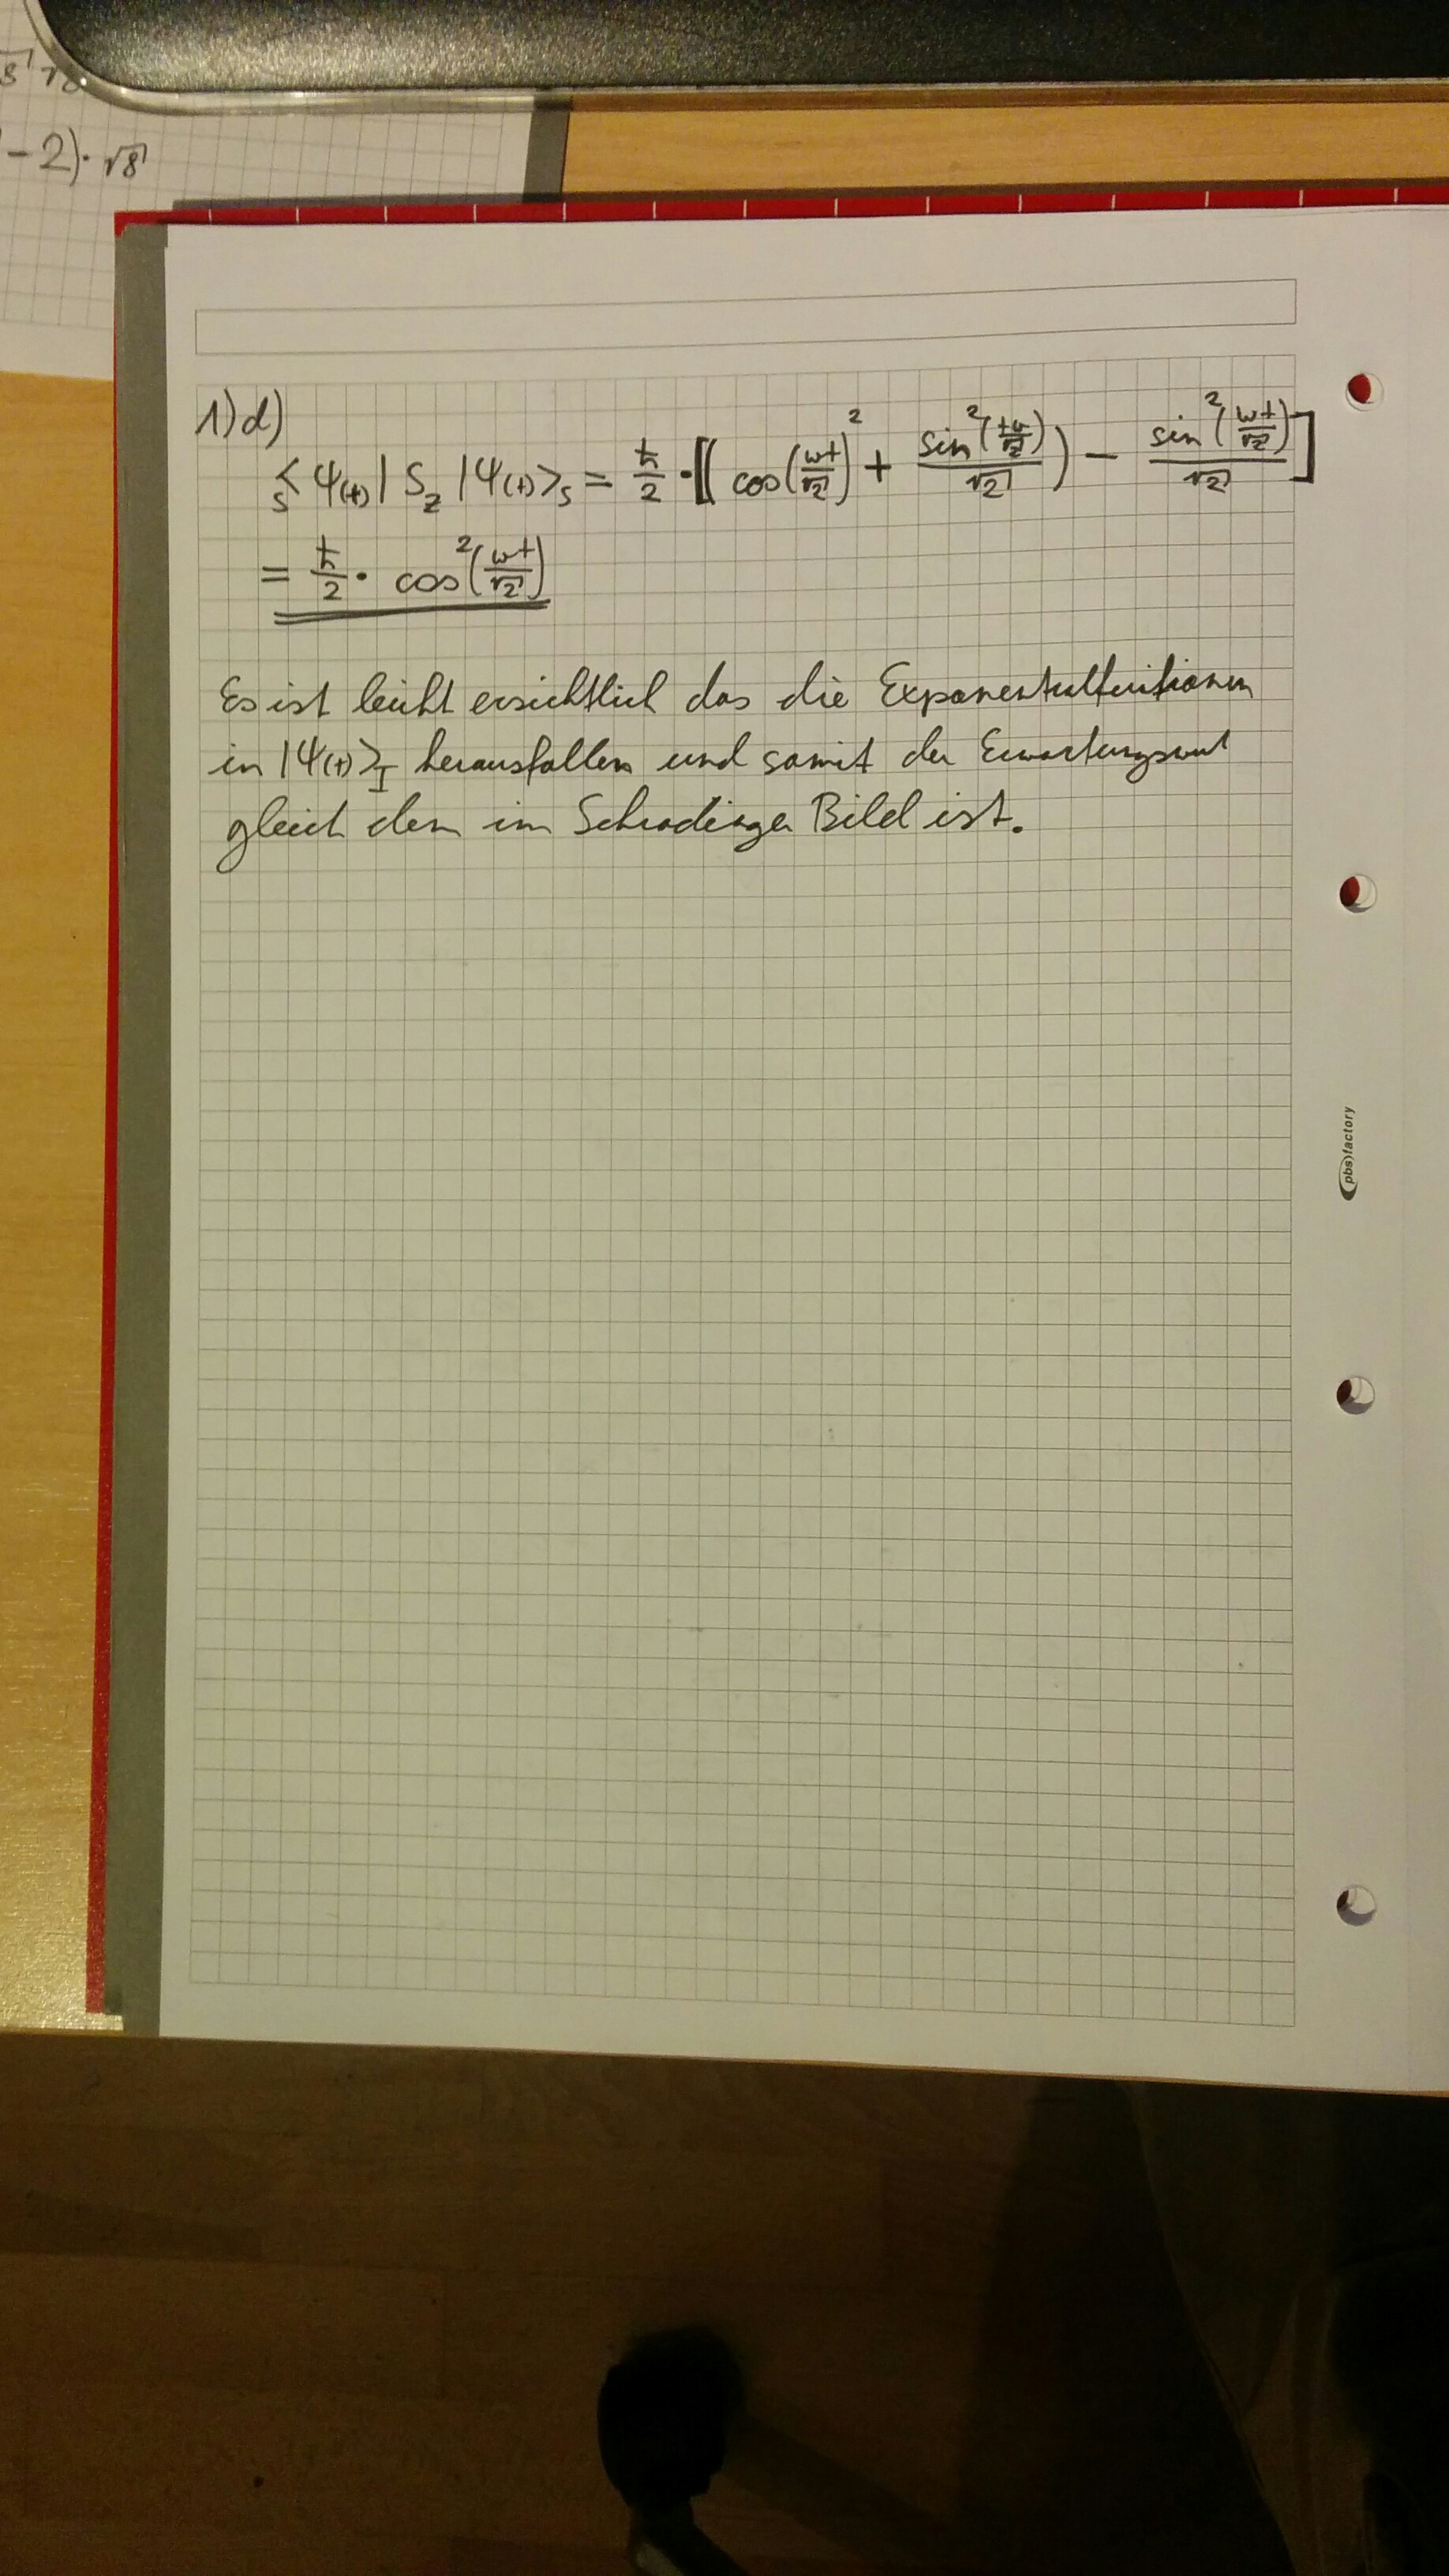 - 2) · √8
1)d)
s<Ψ(t)| S_z |Ψ(t)>s = ħ/2 · [( cos(ωt/√2)² + sin²(tω/√2)/√2 ) − sin²(ωt/√2)/√2 ]
= ħ/2 · cos²(ωt/√2)
Es ist leicht ersichtlich das die Exponentialfunktionen
in |Ψ(t)>_I herausfallen und somit der Erwartungswert
gleich dem im Schrodinger Bild ist.
pbs)factory